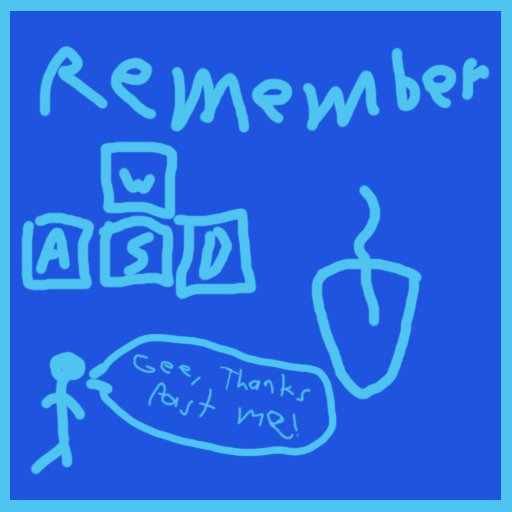 Remember
W
A S D
Gee, Thanks
Past me!